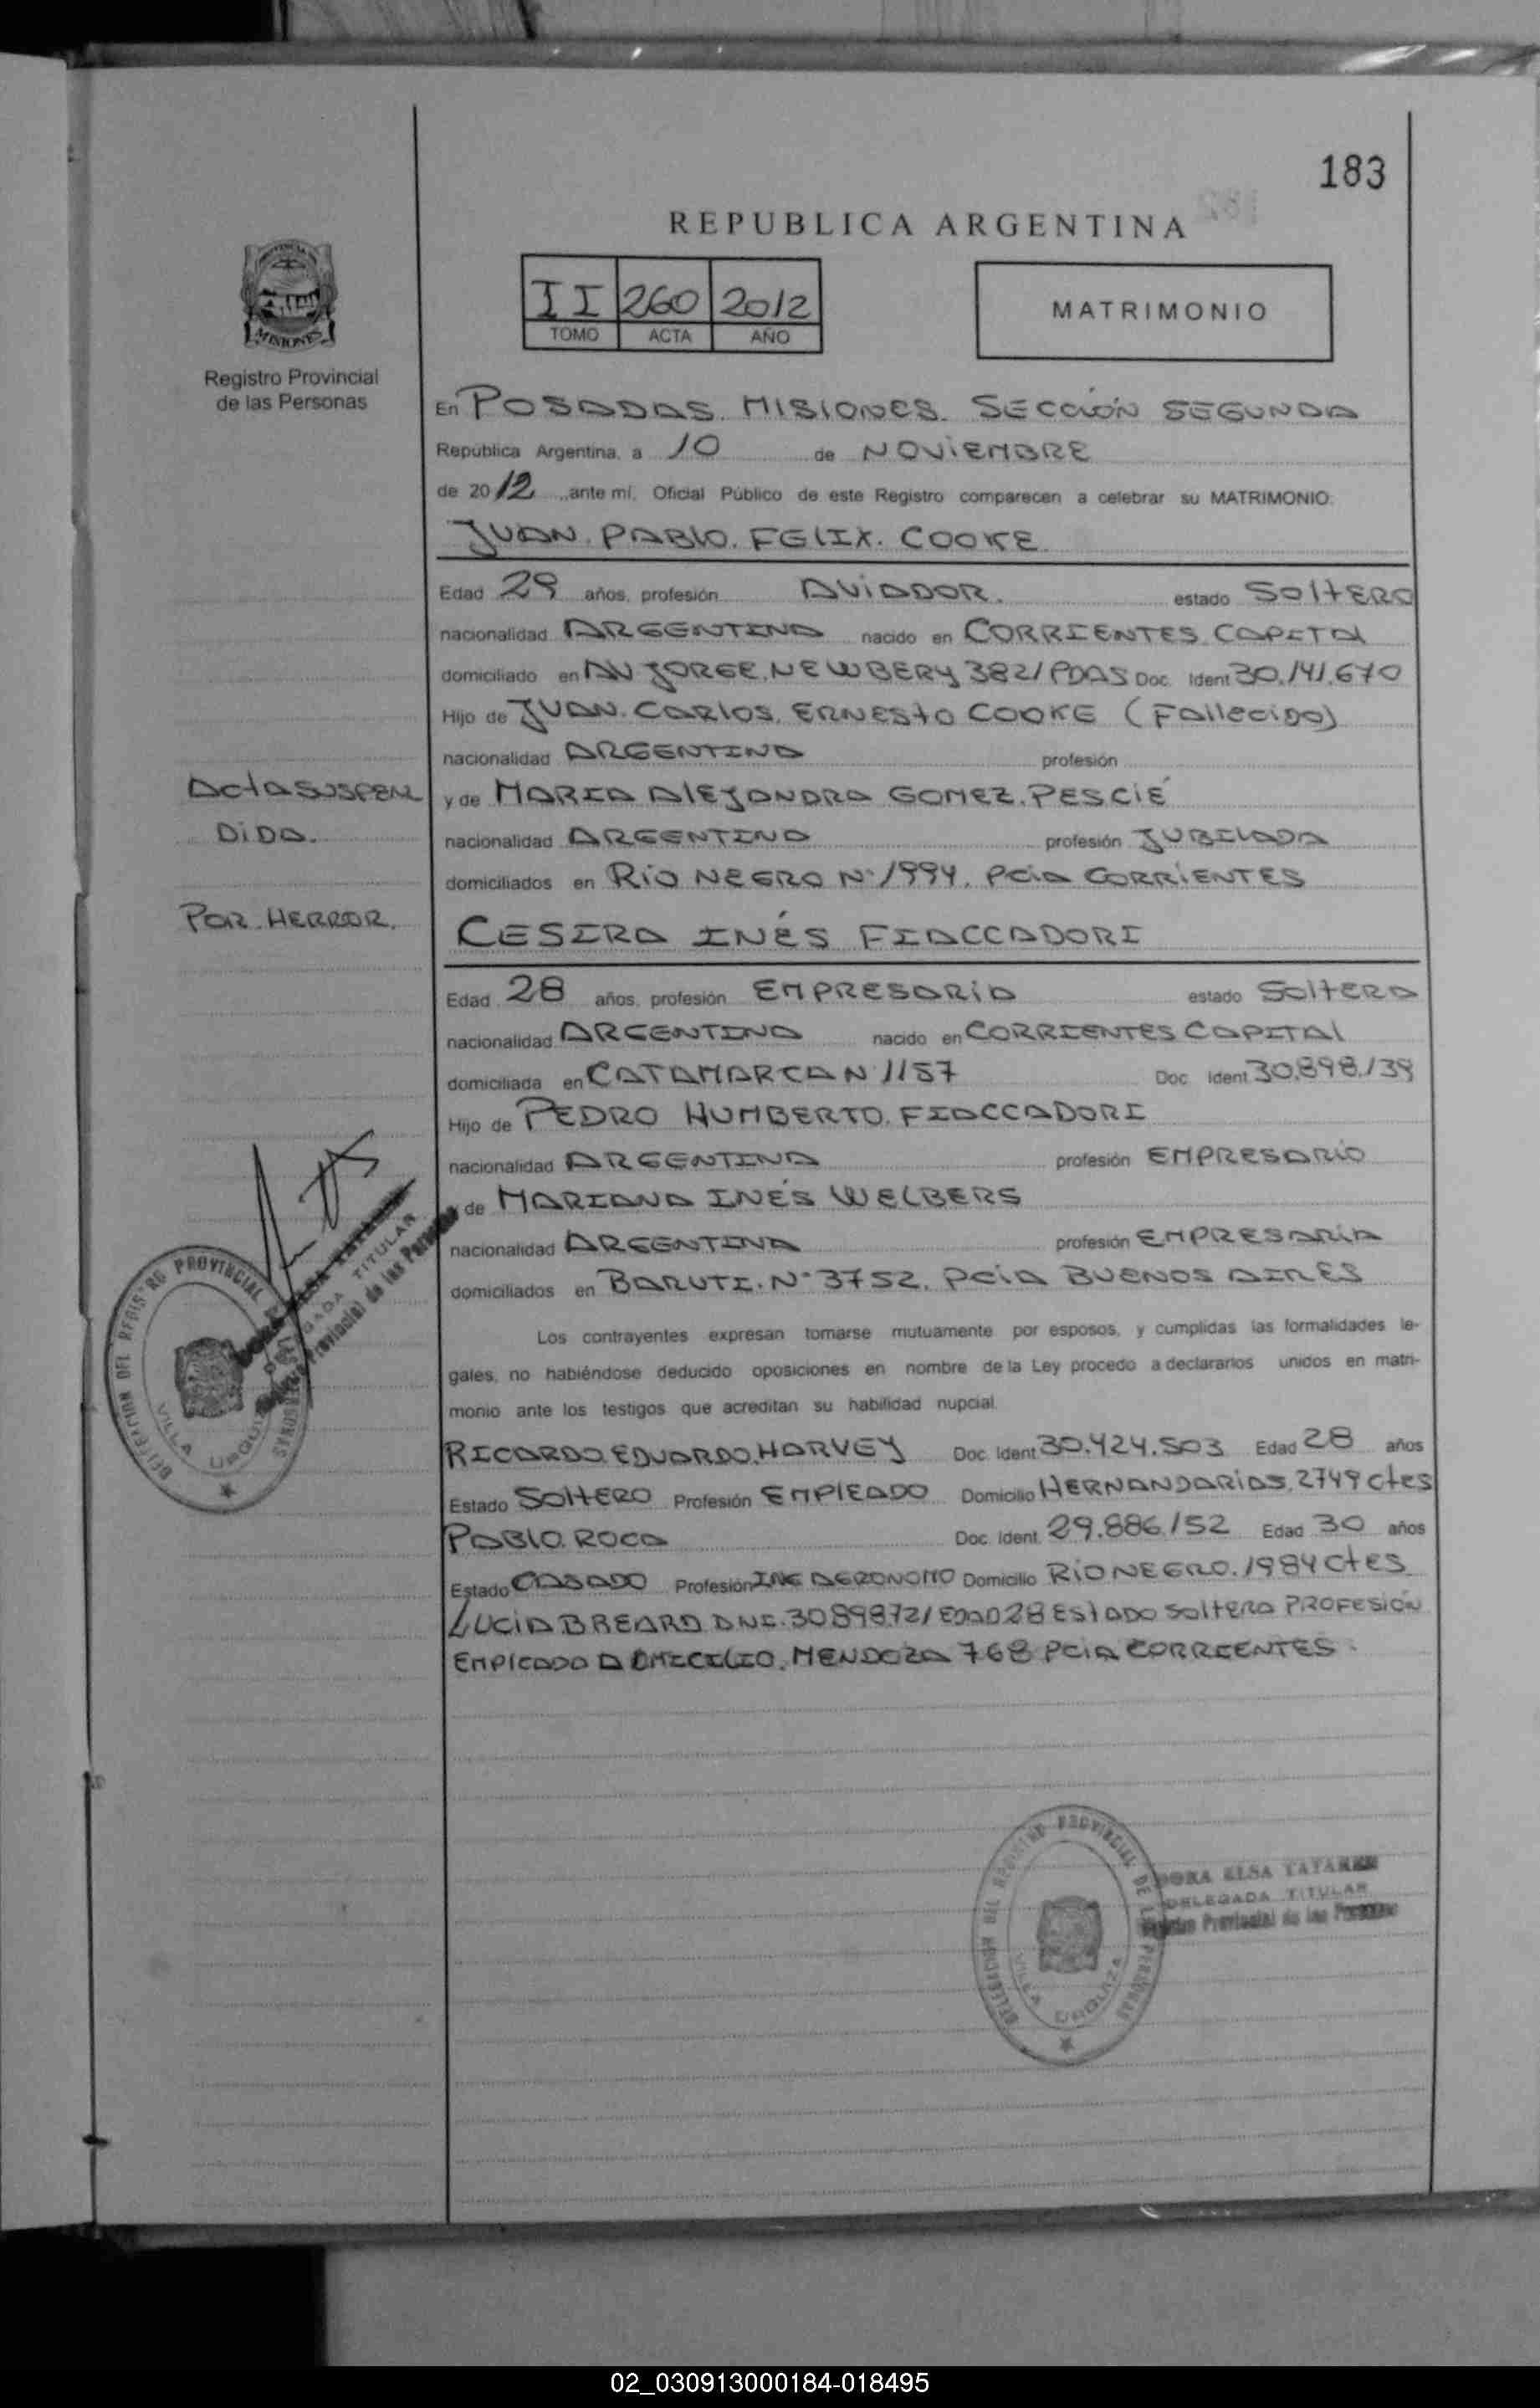 183
REPUBLICA ARGENTINA
II 260 2012
TOMO ACTA AÑO
MATRIMONIO
MISIONES
Registro Provincial
de las Personas
En POSADAS. MISIONES. SECCIÓN SEGUNDA
República Argentina, a 10 de NOVIEMBRE
de 2012 ante mí, Oficial Público de este Registro comparecen a celebrar su MATRIMONIO:
JUAN. PABLO. FELIX. COOKE
Edad 29 años, profesión AVIADOR. estado SOLTERO
nacionalidad ARGENTINA nacido en CORRIENTES CAPITAL
domiciliado en AV JORGE. NEWBERY 3821 PDAS Doc. Ident 30.141.670
Hijo de JUAN. CARLOS. ERNESTO COOKE (FALLECIDO)
nacionalidad ARGENTINA profesión
y de MARIA ALEJANDRA GOMEZ. PESCIÉ
nacionalidad ARGENTINA profesión JUBILADA
domiciliados en RIO NEGRO Nº 1994. PCIA CORRIENTES
ACTA SUSPEN
DIDA.
POR. HERROR.
CESIRA INÉS FIACCADORI
Edad 28 años, profesión EMPRESARIA estado SOLTERA
nacionalidad ARGENTINA nacido en CORRIENTES CAPITAL
domiciliada en CATAMARCA N 1157 Doc. Ident 30.898.139
Hijo de PEDRO HUMBERTO. FIACCADORI
nacionalidad ARGENTINA profesión EMPRESARIO
y de MARIANA INÉS WELBERS
nacionalidad ARGENTINA profesión EMPRESARIA
domiciliados en BARUTI. Nº 3752. PCIA BUENOS AIRES
Los contrayentes expresan tomarse mutuamente por esposos, y cumplidas las formalidades le-
gales, no habiéndose deducido oposiciones en nombre de la Ley procedo a declararlos unidos en matri-
monio ante los testigos que acreditan su habilidad nupcial.
RICARDO. EDUARDO. HARVEY Doc. Ident 30.424.503 Edad 28 años
Estado SOLTERO Profesión EMPLEADO Domicilio HERNANDARIAS. 2749 CTES
PABLO. ROCA Doc. Ident. 29.886.152 Edad 30 años
Estado CASADO Profesión ING AGRONOMO Domicilio RIO NEGRO. 1984 CTES
LUCIA BREARD DNI. 30898721 EDAD 28 ESTADO SOLTERA PROFESIÓN
EMPLEADA DOMICILIO. MENDOZA 768 PCIA CORRIENTES.
DELEGACION DEL REGISTRO PROVINCIAL DE LAS PERSONAS
VILLA URQUIZA
TITULAR
Provincial de las Personas
DELEGACION DEL REGISTRO PROVINCIAL DE LAS PERSONAS
VILLA URQUIZA
DORA ELSA
DELEGADA TITULAR
Registro Provincial de las Personas
02_030913000184-018495